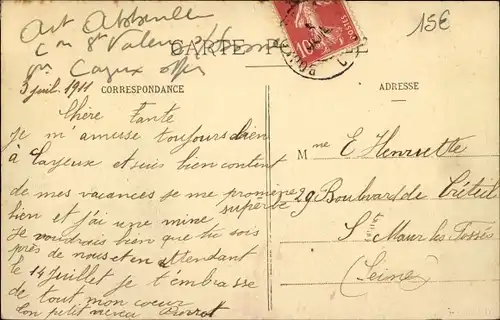 Art Abbeville
Con St Valery s/Somme
15€
CARTE P
10
POSTES
Cayeux
3 juil. 1911
CORRESPONDANCE
ADRESSE
Chère Tante
Je m'amuse toujours bien
à Cayeux et suis bien content
de mes vacances je me promène
bien et j'ai une mine superbe
Je voudrais bien que tu sois
près de nous et en attendant
le 14 Juillet je t'embrasse
de tout mon coeur
Ton petit neveu
Mme E Henriette
29 Boulevard de Créteil
St Maur les Fossés
(Seine)